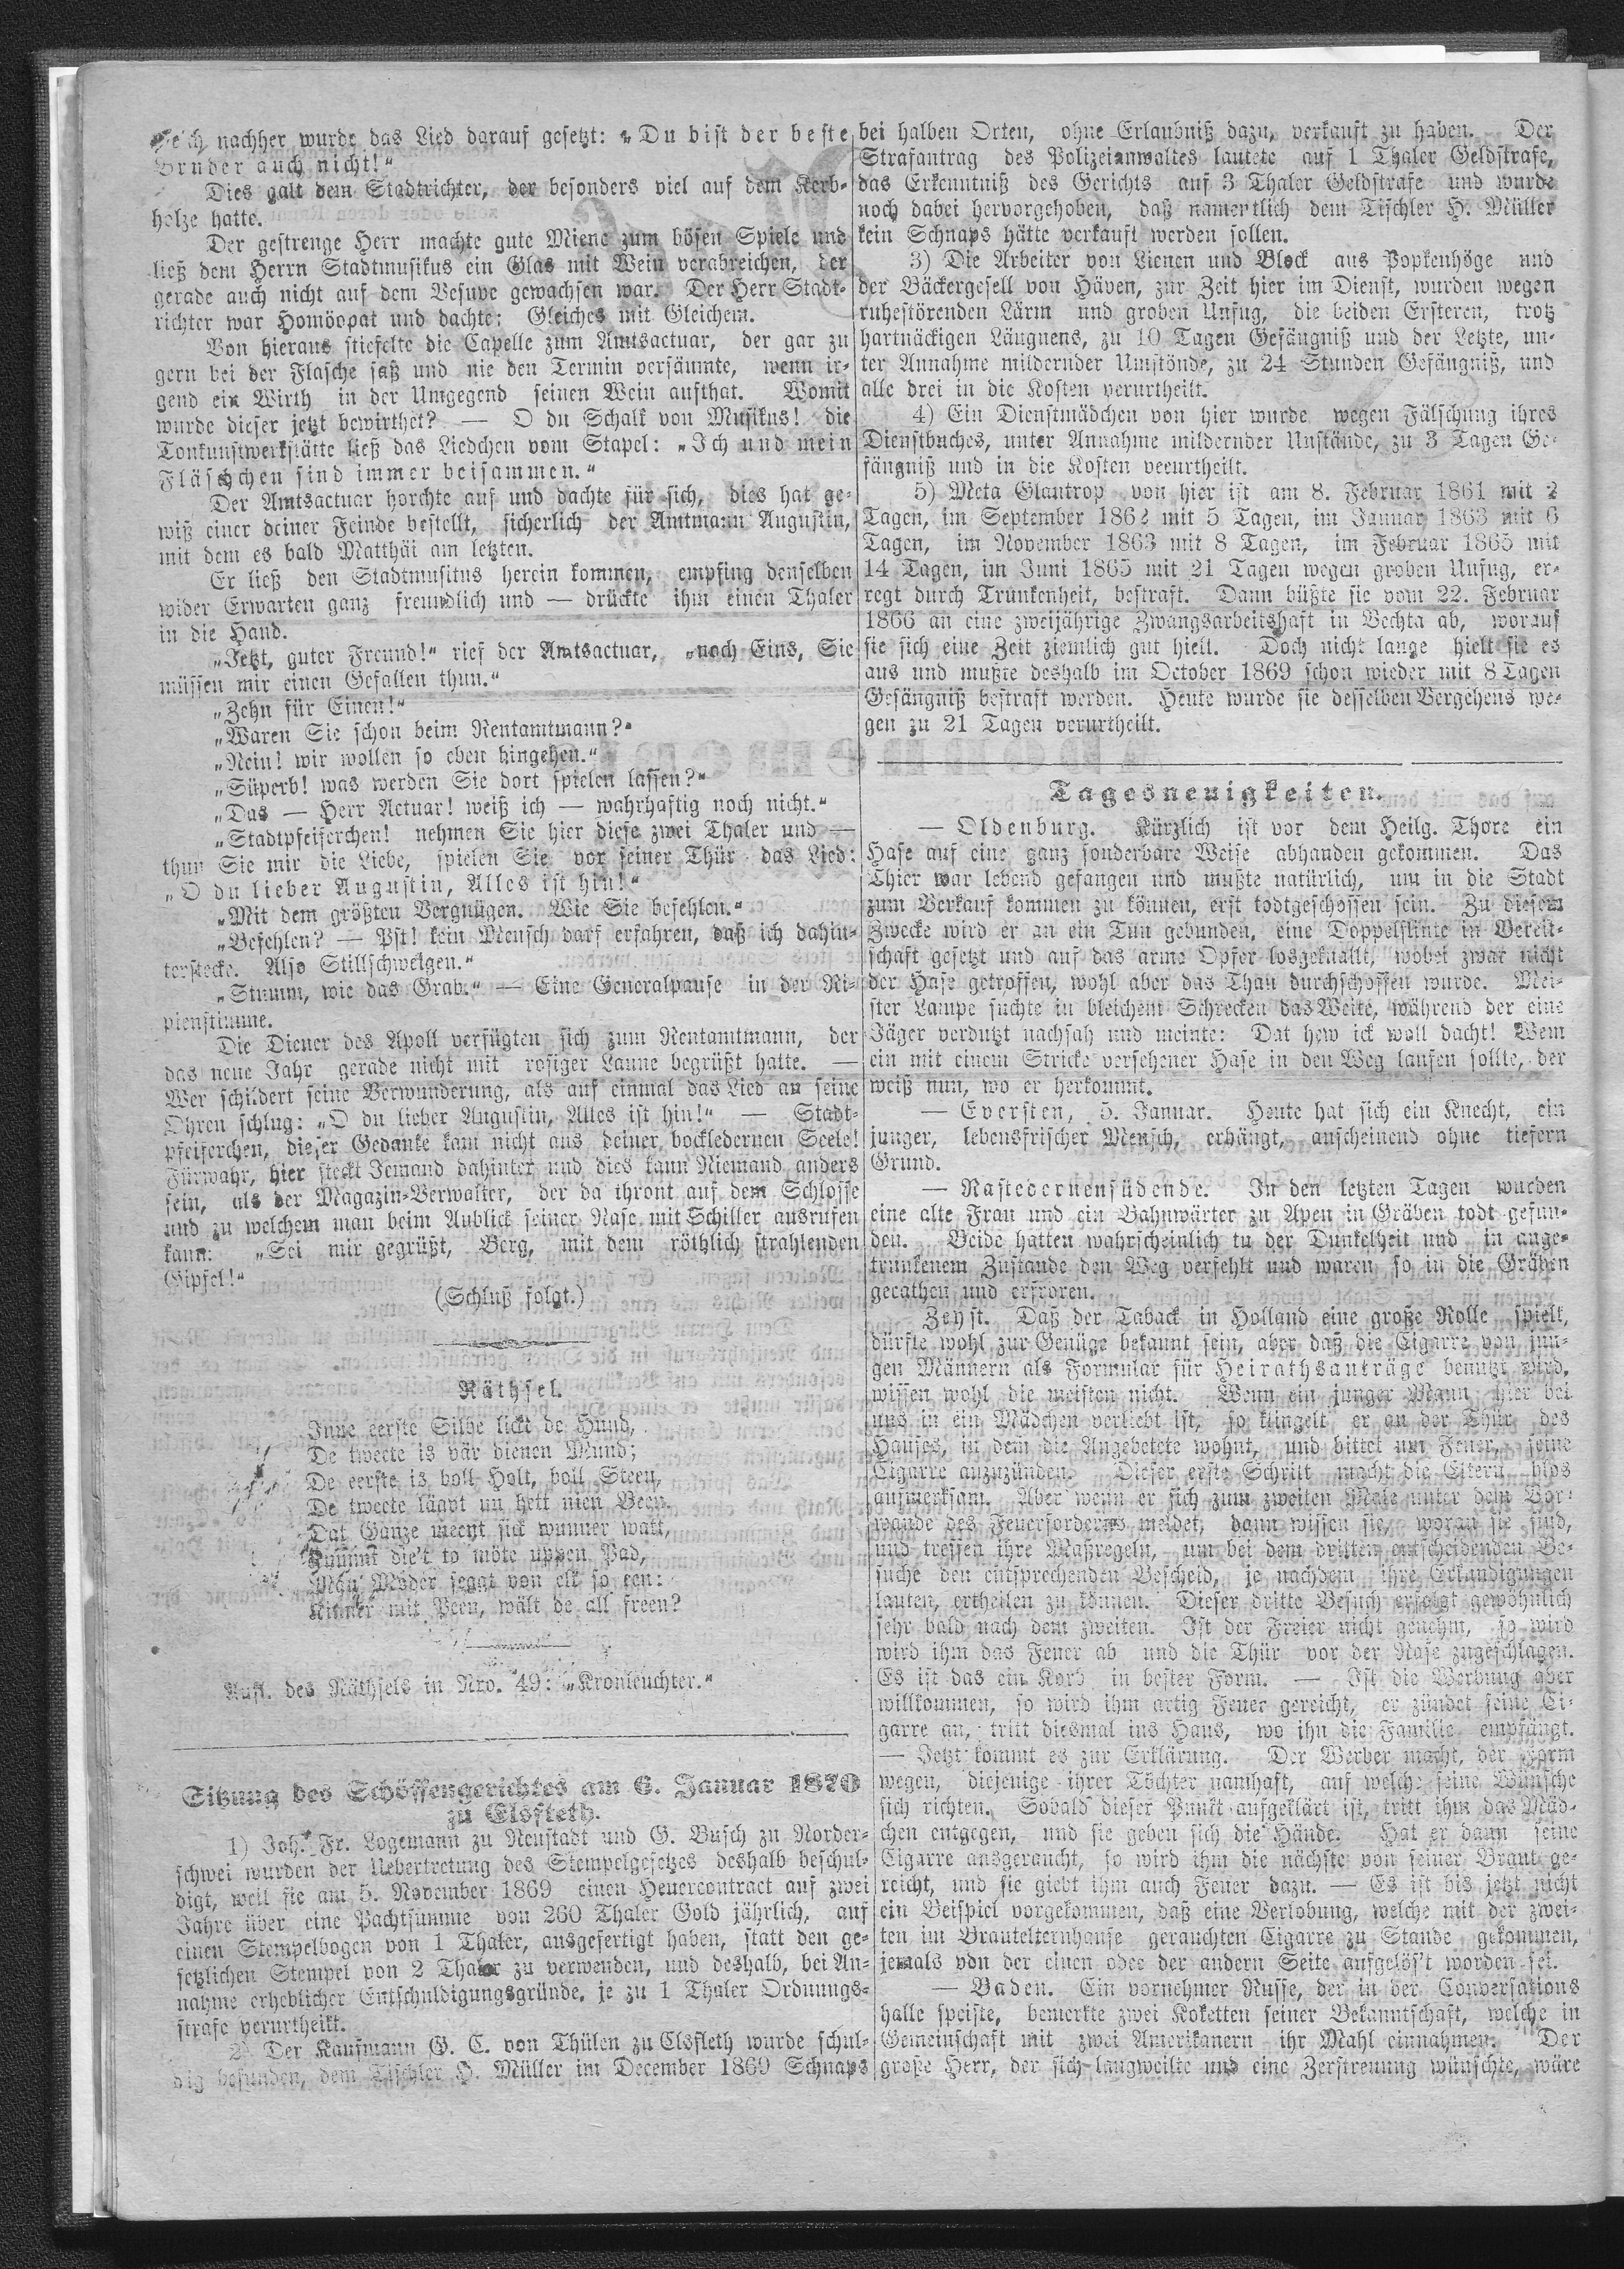 nachher wurde das Lied darauf gesetzt: „Du bist der beste
Bruder auch nicht!“
Dies galt dem Stadtrichter, der besonders viel auf dem Kerb-
holze hatte.
Der gestrenge Herr machte gute Miene zum bösen Spiele und
ließ dem Herrn Stadtmusikus ein Glas mit Wein verabreichen, der
gerade auch nicht auf dem Vesuve gewachsen war. Der Herr Stadt-
richter war Homöopat und dachte: Gleiches mit Gleichem.
Von hieraus stiefelte die Capelle zum Amtsactuar, der gar zu
gern bei der Flasche saß und nie den Termin versäumte, wenn ir-
gend ein Wirth in der Umgegend seinen Wein aufthat. Womit
wurde dieser jetzt bewirthet? — O du Schalk von Musikus! die
Tonkunstwerkstätte ließ das Liedchen vom Stapel: „Ich und mein
Fläschchen sind immer beisammen.“
Der Amtsactuar horchte auf und dachte für sich, dies hat ge-
wiß einer deiner Feinde bestellt, sicherlich der Amtmann Augustin,
mit dem es bald Matthäi am letzten.
Er ließ den Stadtmusitus herein kommen, empfing denselben
wider Erwarten ganz freundlich und — drückte ihm einen Thaler
in die Hand.
„Jetzt, guter Freund!“ rief der Amtsactuar, „noch Eins, Sie
müssen mir einen Gefallen thun.“
„Zehn für Einen!“
„Waren Sie schon beim Rentamtmann?“
„Nein! wir wollen so eben hingehen.“
„Süperb! was werden Sie dort spielen lassen?“
„Das — Herr Actuar! weiß ich — wahrhaftig noch nicht.“
„Stadtpfeiferchen! nehmen Sie hier diese zwei Thaler und —
thun Sie mir die Liebe, spielen Sie vor seiner Thür das Lied:
„O du lieber Augustin, Alles ist hin!“
„Mit dem größten Vergnügen. Wie Sie befehlen.“
„Befehlen? — Pst! kein Mensch darf erfahren, daß ich dahin-
terstecke. Also Stillschweigen.“
„Stumm, wie das Grab.“ — Eine Generalpause in der Ri-
pienstimme.
Die Diener des Apoll verfügten sich zum Rentamtmann, der
das neue Jahr gerade nicht mit rosiger Laune begrüßt hatte. —
Wer schildert seine Verwunderung, als auf einmal das Lied an seine
Ohren schlug: „O du lieber Augustin, Alles ist hin!“ — Stadt-
pfeiferchen, dieser Gedanke kam nicht aus deiner bockledernen Seele!
Fürwahr, hier steckt Jemand dahinter und dies kann Niemand anders
sein, als der Magazin-Verwalter, der da thront auf dem Schlosse
und zu welchem man beim Anblick seiner Nase mit Schiller ausrufen
kann: „Sei mir gegrüßt, Berg, mit dem röthlich strahlenden
Gipfel!“
(Schluß folgt.)
Räthsel.
Inne eerste Silbe lickt de Hund,
De tweete is vär dienen Mund;
De eerste is voll Holt, voll Steen,
De tweete läävt un hett nien Been.
Dat Ganze meent sick wunner watt,
Kummt die't to möte uppen Pad,
Män Moder seggt von elk so een:
Kinner mit Been, wält de all freen?
Aufl. des Räthsels in Nro. 49: „Kronleuchter.“
Sitzung des Schöffengerichtes am 6. Januar 1870
zu Elsfleth.
1) Joh. Fr. Logemann zu Neustadt und G. Busch zu Norder-
schwei wurden der Uebertretung des Stempelgesetzes deshalb beschul-
digt, weil sie am 5. November 1869 einen Heuercontract auf zwei
Jahre über eine Pachtsumme von 260 Thaler Gold jährlich, auf
einen Stempelbogen von 1 Thaler, ausgefertigt haben, statt den ge-
setzlichen Stempel von 2 Thaler zu verwenden, und deshalb, bei An-
nahme erheblicher Entschuldigungsgründe, je zu 1 Thaler Ordnungs-
strafe verurtheilt.
2) Der Kaufmann G. C. von Thülen zu Elsfleth wurde schul-
dig befunden, dem Tischler H. Müller im December 1869 Schnaps
bei halben Orten, ohne Erlaubniß dazu, verkauft zu haben. Der
Strafantrag des Polizeianwaltes lautete auf 1 Thaler Geldstrafe,
das Erkenntniß des Gerichts auf 3 Thaler Geldstrafe und wurde
noch dabei hervorgehoben, daß namentlich dem Tischler H. Müller
kein Schnaps hätte verkauft werden sollen.
3) Die Arbeiter von Lienen und Block aus Popkenhöge und
der Bäckergesell von Häven, zur Zeit hier im Dienst, wurden wegen
ruhestörenden Lärm und groben Unfug, die beiden Ersteren, trotz
hartnäckigen Läugnens, zu 10 Tagen Gefängniß und der Letzte, un-
ter Annahme mildernder Umstönde, zu 24 Stunden Gefängniß, und
alle drei in die Kosten verurtheilt.
4) Ein Dienstmädchen von hier wurde wegen Fälschung ihres
Dienstbuches, unter Annahme mildernder Unstände, zu 3 Tagen Ge-
fängniß und in die Kosten veeurtheilt.
5) Meta Glantrop von hier ist am 8. Februar 1861 mit 2
Tagen, im September 1862 mit 5 Tagen, im Januar 1863 mit 6
Tagen, im November 1863 mit 8 Tagen, im Februar 1865 mit
14 Tagen, im Juni 1865 mit 21 Tagen wegen groben Unfug, er-
regt durch Trunkenheit, bestraft. Dann büßte sie vom 22. Februar
1866 an eine zweijährige Zwangsarbeitshaft in Vechta ab, worauf
sie sich eine Zeit ziemlich gut hielt. Doch nicht lange hielt sie es
aus und mußte deshalb im October 1869 schon wieder mit 8 Tagen
Gefängniß bestraft werden. Heute wurde sie desselben Vergehens we-
gen zu 21 Tagen verurtheilt.
Tagesneuigkeiten.
— Oldenburg. Kürzlich ist vor dem Heilg. Thore ein
Hase auf eine ganz sonderbare Weise abhanden gekommen. Das
Thier war lebend gefangen und mußte natürlich, um in die Stadt
zum Verkauf kommen zu können, erst todtgeschossen sein. Zu diesem
Zwecke wird er an ein Tun gebunden, eine Doppelflinte in Bereit-
schaft gesetzt und auf das arme Opfer losgeknallt, wobei zwar nicht
der Hase getroffen, wohl aber das Thau durchschossen wurde. Mei-
ster Lampe suchte in bleichem Schrecken das Weite, während der eine
Jäger verdutzt nachsah und meinte: Dat hew ick woll dacht! Wem
ein mit einem Stricke versehener Hase in den Weg laufen sollte, der
weiß nun, wo er herkommt.
— Eversten, 5. Januar. Heute hat sich ein Knecht, ein
junger, lebensfrischer Mensch, erhängt, anscheinend ohne tiefern
Grund.
— Rastedernensüdende. In den letzten Tagen wurden
eine alte Frau und ein Bahnwärter zu Apen in Gräben todt gefun-
den. Beide hatten wahrscheinlich tu der Dunkelheit und in ange-
trunkenem Zustande den Weg verfehlt und waren so in die Gräben
gerathen und erfroren.
Zeyst. Daß der Taback in Holland eine große Rolle spielt,
dürfte wohl zur Genüge bekannt sein, aber daß die Cigarre von jun-
gen Männern als Formular für Heirathsanträge benutzt wird,
wissen wohl die meisten nicht. Wenn ein junger Mann hier bei
uns in ein Mädchen verliebt ist, so klingelt er an der Thür des
Hauses, in dem die Angebetete wohnt, und bittet um Feuer, seine
Cigarre anzuzünden. Dieser erste Schritt macht die Eltern blos
aufmerksam. Aber wenn er sich zum zweiten Male unter dem Vor-
wande des Feuerforderns meldet, dann wissen sie, woran sie sind,
und treffen ihre Maßregeln, um bei dem dritten entscheidenden Be-
suche den entsprechenden Bescheid, je nachdem ihre Erkundigungen
lauten, ertheilen zu können. Dieser dritte Besuch erfolgt gewöhnlich
sehr bald nach dem zweiten. Ist der Freier nicht genehm, so wird
wird ihm das Feuer ab und die Thür vor der Nase zugeschlagen.
Es ist das ein Korb in bester Form. — Ist die Werbung aber
willkommen, so wird ihm artig Feuer gereicht, er zündet seine Ci-
garre an, tritt diesmal ins Haus, wo ihn die Familie empfängt.
— Jetzt kommt es zur Erklärung. Der Werber macht, der Form
wegen, diejenige ihrer Töchter namhaft, auf welche seine Wünsche
sich richten. Sobald dieser Punkt aufgeklärt ist, tritt ihm das Mäd-
chen entgegen, und sie geben sich die Hände. Hat er dann seine
Cigarre ausgeraucht, so wird ihm die nächste von seiner Braut ge-
reicht, und sie giebt ihm auch Feuer dazu. — Es ist bis jetzt nicht
ein Beispiel vorgekommen, daß eine Verlobung, welche mit der zwei-
ten im Brautelternhause gerauchten Cigarre zu Stande gekommen,
jemals von der einen odee der andern Seite aufgelös't worden sei.
— Baden. Ein vornehmer Russe, der in der Conversations
halle speiste, bemerkte zwei Koketten seiner Bekanntschaft, welche in
Gemeinschaft mit zwei Amerikanern ihr Mahl einnahmen. Der
große Herr, der sich langweilte und eine Zerstreuung wünschte, wäre